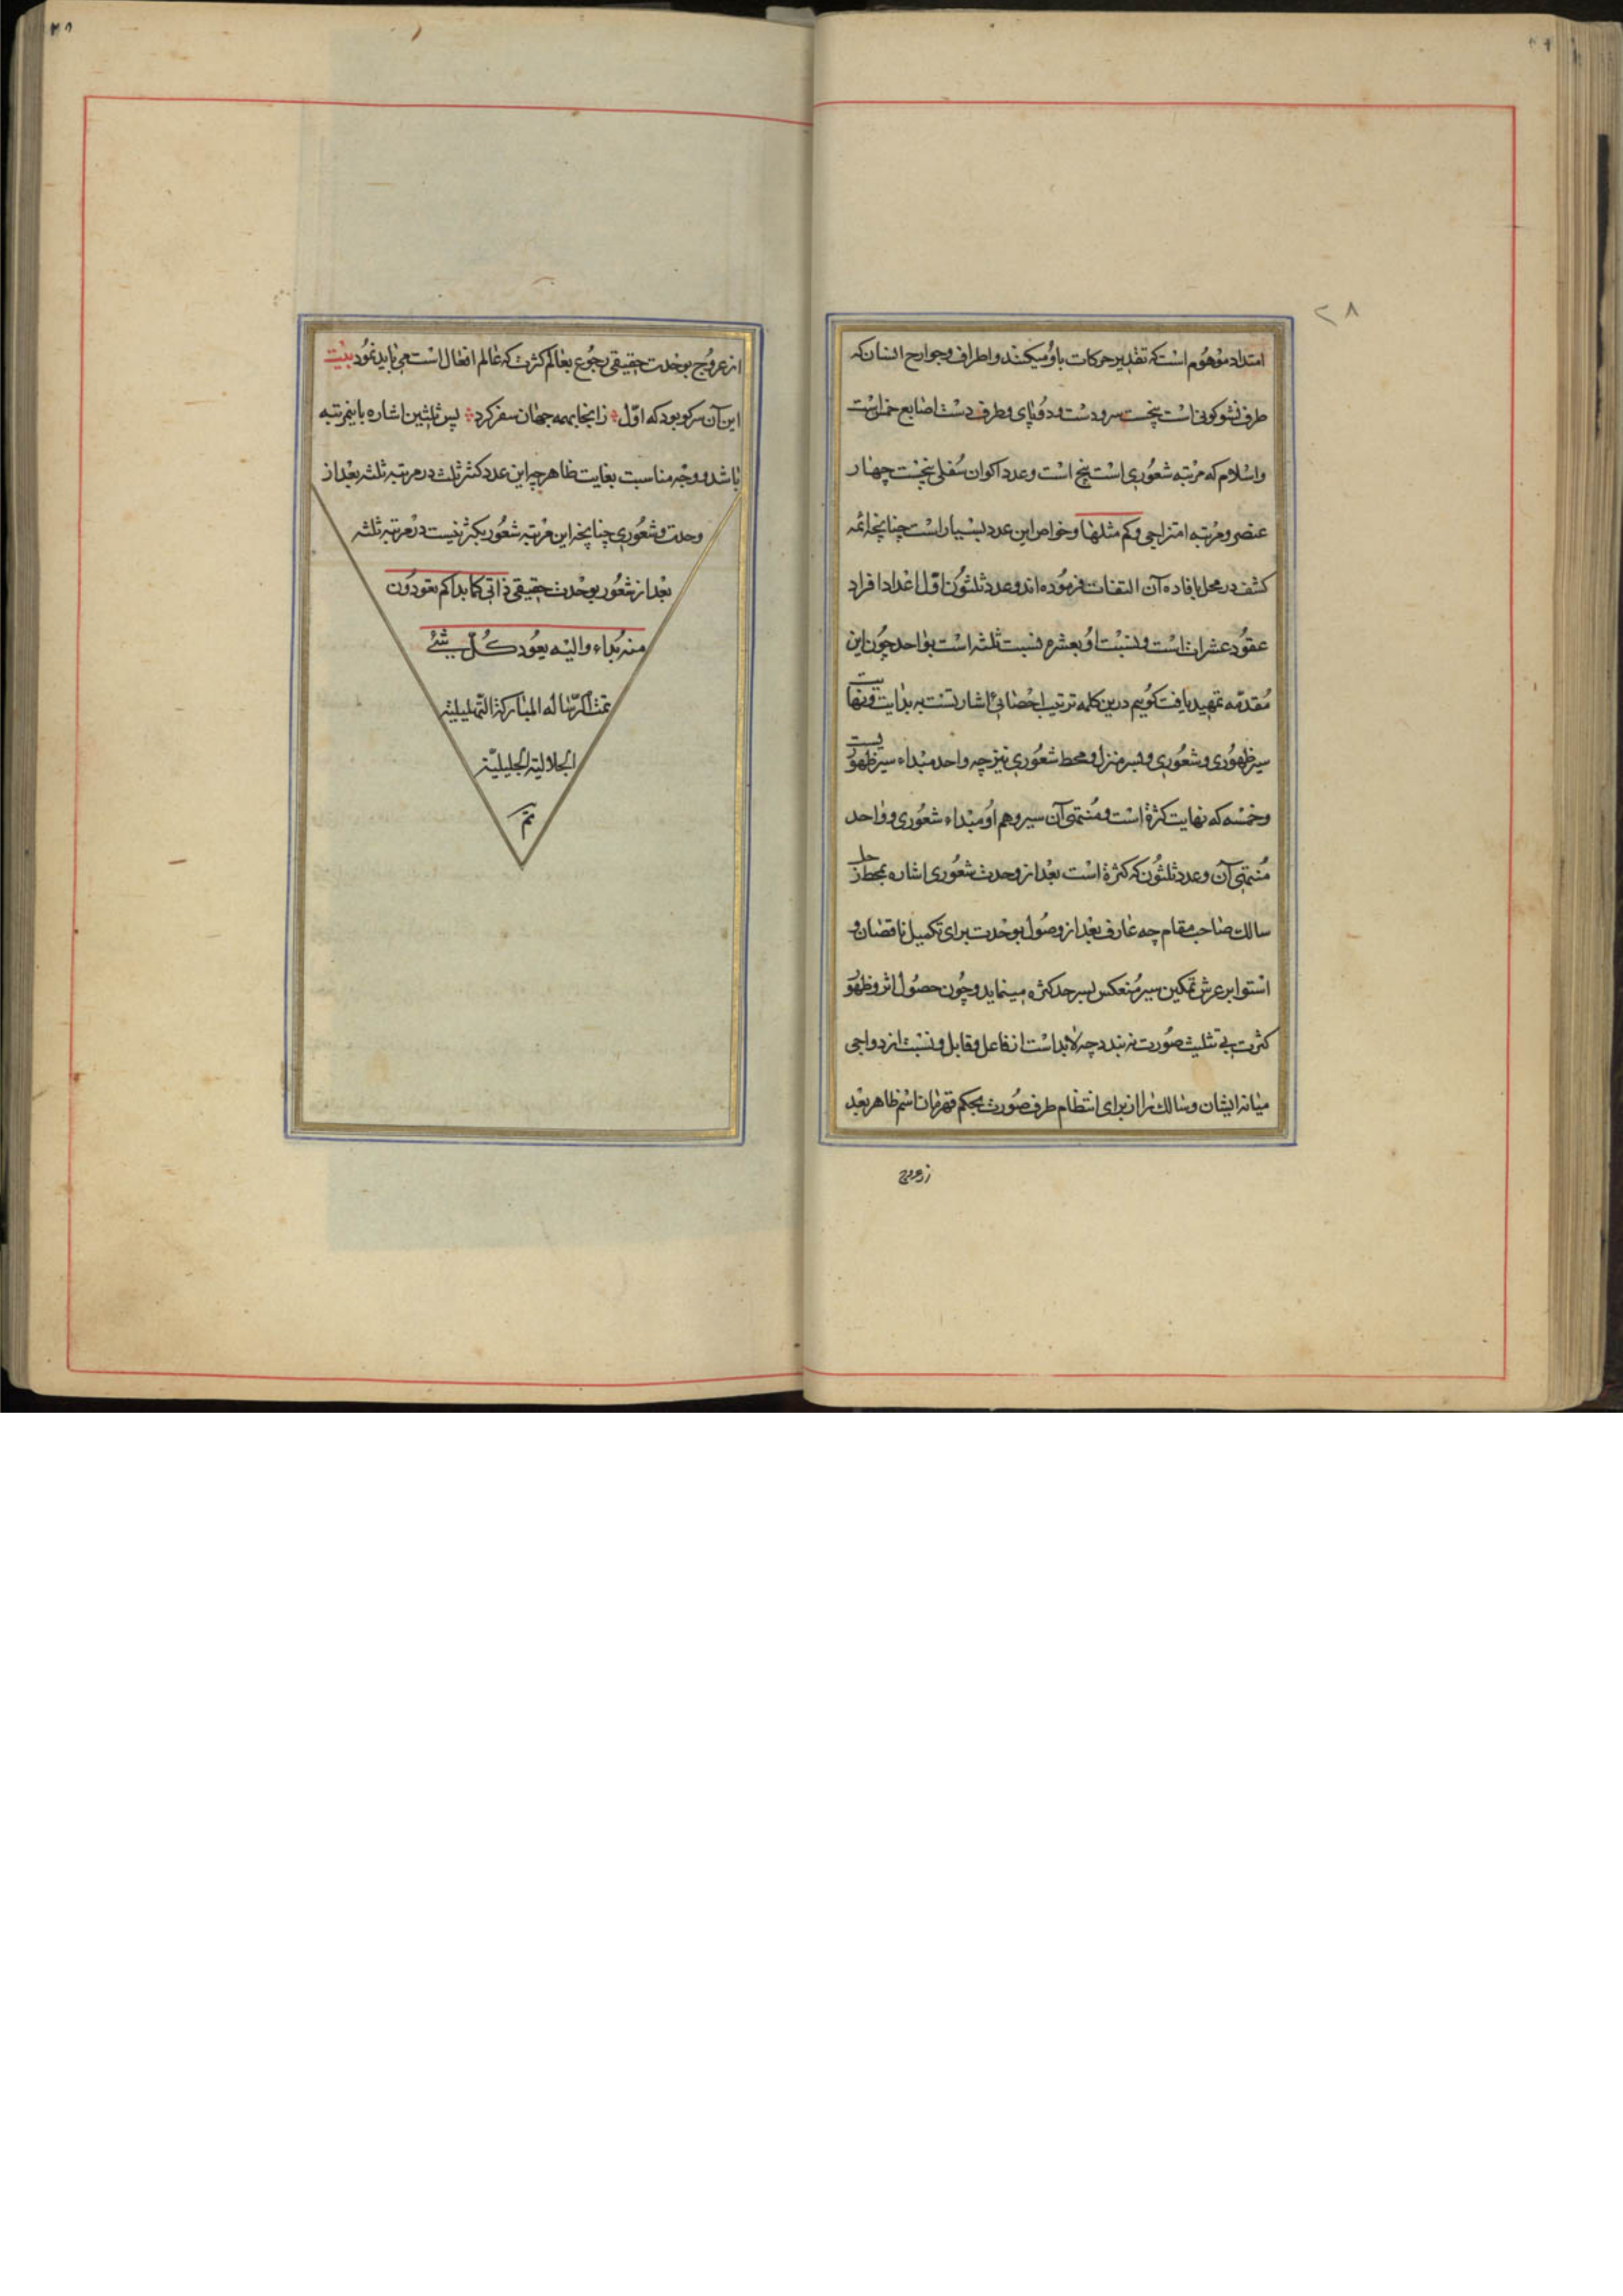 ۲۸
امتداد موهوم است که تقدیر حرکات باو میکنند و اطراف و جوارح انسان که
طرف نشو کونی است پنجست سر و دست و دو پای و طرف دست اصابع خمس است
و اسلام که مرتبه شعوری است پنج است و عدد اکوان سفلی پنجست چهار
عنصر و مرتبه امتزاجی و کم مثلها و خواص این عدد بسیار است چنانچه ائمه
کشف در محل بافاده آن التفات فرموده اند و عدد ثلثون اول اعداد افراد
عقود عشراتست و نسبت او بعشره نسبت ثلثه است بواحد چون این
مقدمه تمهید یافت کوییم درین کلمه ترتیب احصائی اشارتست به بدایت و نهایت
سیر ظهوری و شعوری و بسر منزل و محط شعوری نیز چه واحد مبداء سیر ظهوریست
و خمسه که نهایت کثرة است و منتهی آن سیر و هم او مبداء شعوری و واحد
منتهی آن و عدد ثلثون که کثرة است بعد از وحدت شعوری اشاره بمحط رحل
سالک صاحب مقام چه عارف بعد از وصول بوحدت برای تکمیل ناقصان و
استوا بر عرش تمکین سیر منعکس بسرحد کثره مینماید و چون حصول اثر و ظهور
کثرت بی تثلیث صورت نه بندد چه لابد است از فاعل و قابل و نسبت ازدواجی
میانه ایشان و سالک را از برای انتظام طرف صورت بحکم قهرمان اسم ظاهر بعد
از عروج
از عروج بوحدت حقیقی رجوع بعالم کثرت که عالم افعال است می باید نمود بیت
این آن سر کو بود که اول ز انجا بهمه جهان سفر کرد پس ثلثین اشاره باینمرتبه
باشد و وجه مناسبت بغایت ظاهر چه این عدد کثر ثلث در مرتبه ثلثه بعد از
وحدت و شعوری چنانچه این مرتبه شعور بکثر نیست در مرتبه ثلثه
بعد از شعور بوحدت حقیقی ذاتی کما بداکم تعودون
منه بداء و الیه یعود کل شئ
تمت الرساله المبارکة التهلیلیة
الجلالیة الجلیلیة
تم